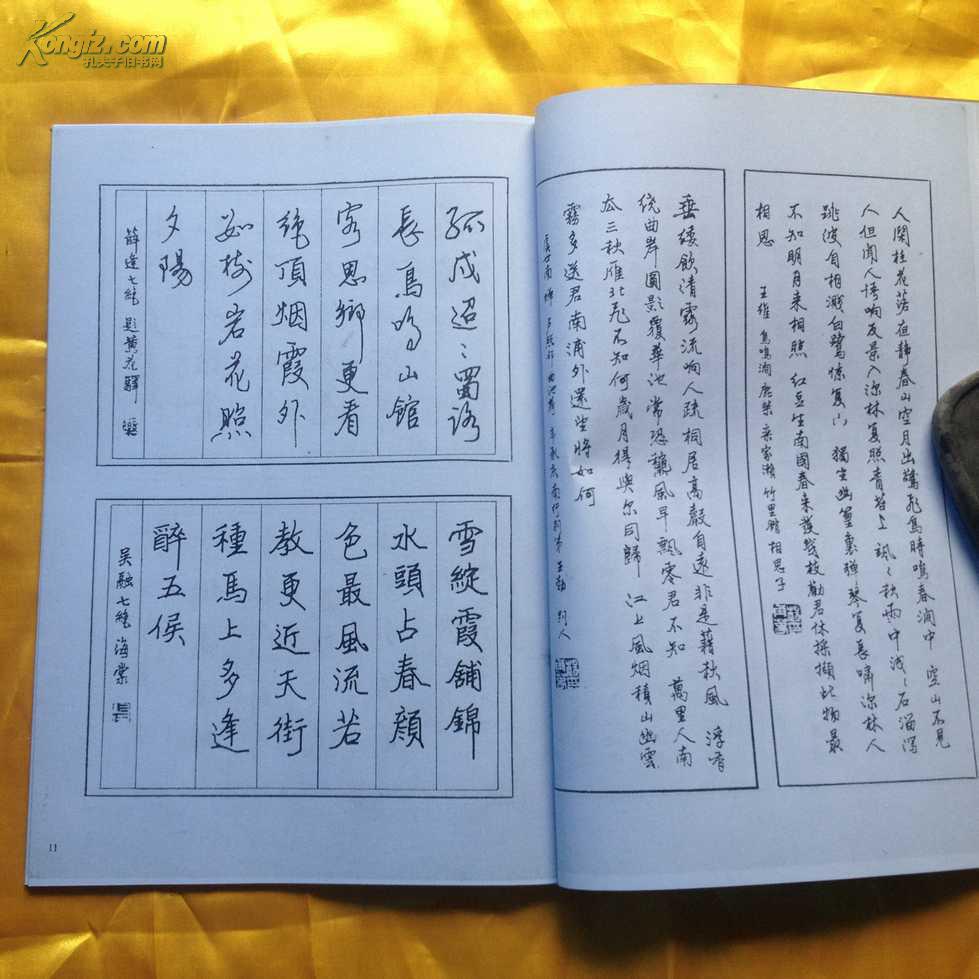 人閑桂花落夜静春山空月出驚飛鳥時鳴春澗中 空山不見
人但聞人语响反景入深林复照青苔上 飒〻秋雨中浅〻石溜瀉
跳波自相溅白鷺惊复下 獨坐幽篁裏弹琴复長嘯深林人
不知明月来相照 红豆生南國春来發幾枝勸君休採擷此物最
相思 王维 鳥鳴澗 鹿柴 栾家濑 竹里館 相思子
垂緌飲清露流响出疏桐居高聲自遠非是藉秋風 浮香
绕曲岸圓影覆華池常恐飄風早飘零君不知 萬里人南
去三秋雁北飛不知何歲月得與尔同歸 江上風烟積山幽雲
霧多送君南浦外還望將如何
虞世南 蝉 卢照邻 曲池荷 韦承庆 南行别弟 王勃 别人
孤戍迢〻蜀路
長鳥鸣山館
客思鄉更看
绝頂烟霞外
数樹岩花照
夕陽
薛逢七絶 題黄花驛
雪綻霞舖錦
水頭占春顔
色最風流若
教更近天街
種馬上多逢
醉五侯
吴融七絶 海棠
11
Kongfz.com
孔夫子旧书网